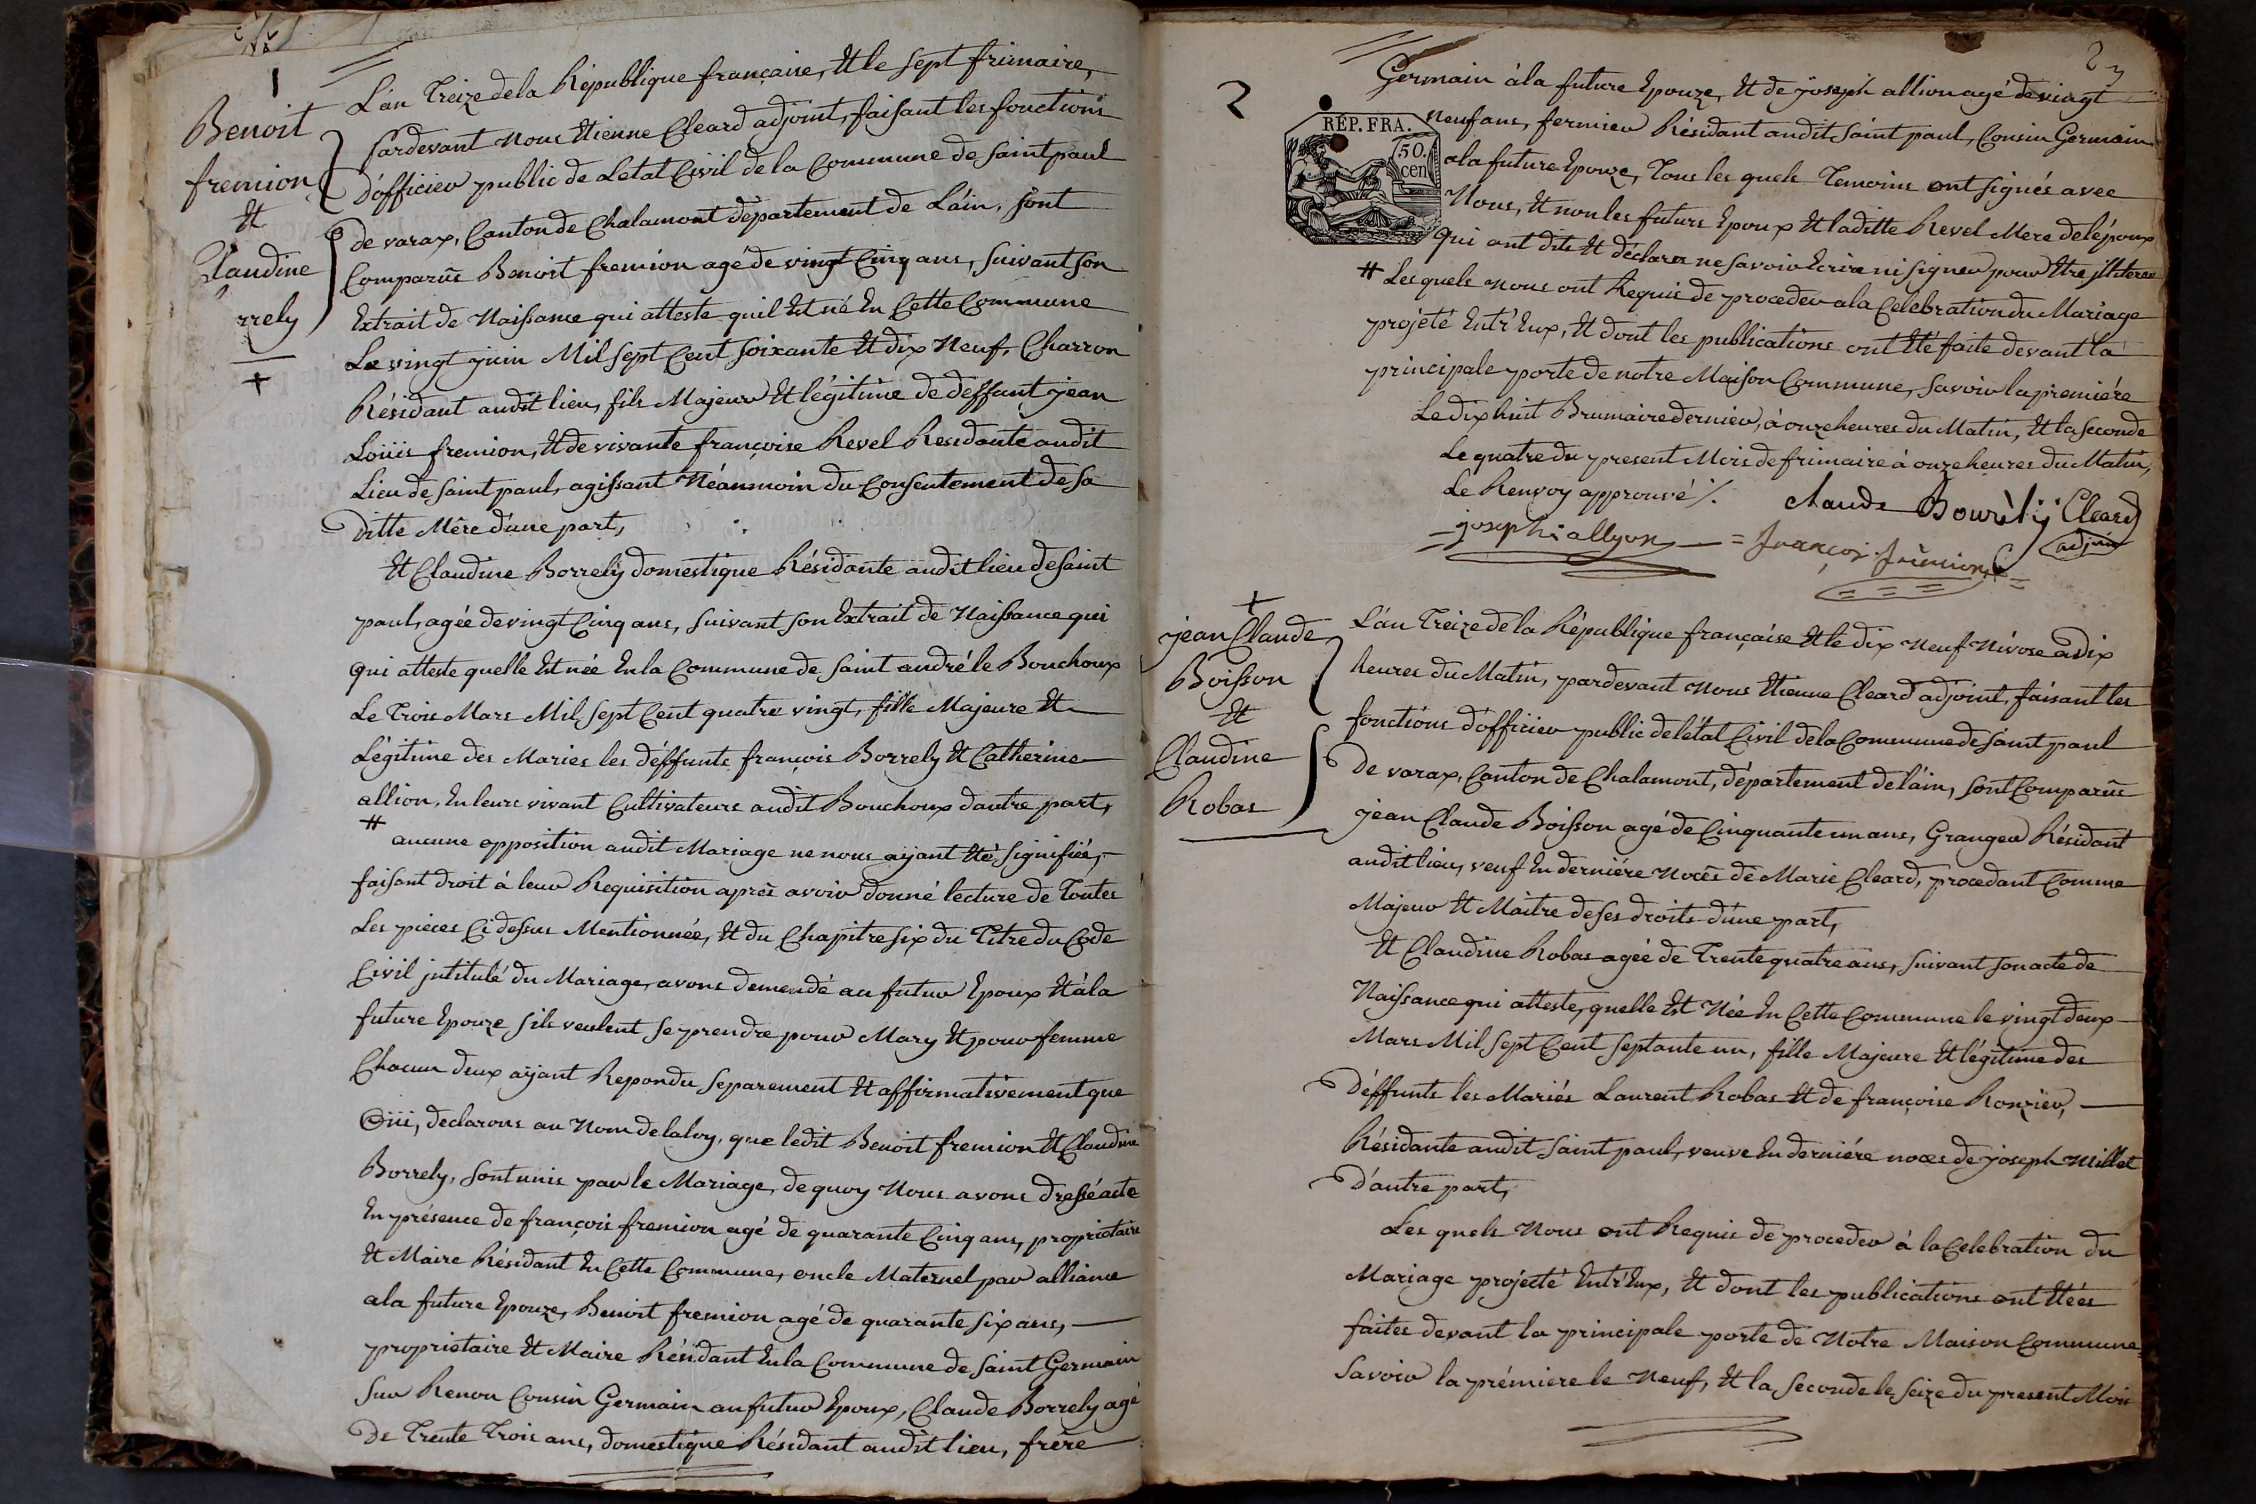 1
Benoit
fremion
Et
Claudine
rrely
L'an Treize de la Republique française, Et le sept frimaire,
Pardevant nous Etienne Cleard adjoint, faisant les fonctions
d'officier public de Letat Civil de la Commune de Saint paul
de varax, Canton de Chalamont département de L'ain, sont
Comparûs Benoit fremion agé de vingt Cinq ans, suivant son
Extrait de Naissance qui atteste quil Est né En Cette Commune
Le vingt juin Mil sept Cent soixante Et dix Neuf, Charron
Résidant audit lieu, fils Majeur Et légitime de deffunt jean
Loüis fremion, Et de vivante françoise Revel Residante audit
Lieu de Saint paul, agissant Néanmoin du Consentement de sa
ditte Mère d'une part,
Et Claudine Borrely domestique Résidante audit lieu de Saint
paul, agée de vingt Cinq ans, suivant son Extrait de Naissance qui
qui atteste quelle Est née En la Commune de Saint andré le Bouchoux
Le Trois Mars Mil sept Cent quatre vingt, fille Majeure Et
Légitime des Mariés les déffunts françois Borrely Et Catherine
allion, En leurs vivant Cultivateurs audit Bouchoux dautre part,
# aucune opposition audit Mariage ne nous aÿant Eté signifiée,
faisant droit à leur Requisition après avoir donné lecture de Toutes
Les pieces Ci dessus Mentionnée, Et du Chapitre six du Titre du Code
Civil jntitulé du Mariage, avons demendé au futur Epoux Et à la
future Epouze sils veulent se prendre pour Mary Et pour femme
Chacun deux aÿant Repondu separement Et affirmativement que
Oüi, declarons au Nom de la loy, que ledit Benoit fremion Et Claudine
Borrely, sont unis par le Mariage, de quoy Nous avons dressé acte
En présence de françois fremion agé de quarante Cinq ans, propriotaire
Et Maire Résidant En Cette Commune, oncle Maternel par alliance
a la future Epouze, Benoit fremion agé de quarante six ans,
proprietaire Et Maire Résidant En la Commune de Saint Germain
sur Renon Cousin Germain au futur Epoux, Claude Borrely agé
de Trente Trois ans, domestique Résidant audit lieu, frère
2
Germain à la future Epouze, Et de joseph allion agé de vingt
neuf ans, fermier Résidant audit Saint paul, Cousin Germain
a la future Epouze, Tous les quels Temoins ont signés avec
Nous, Et non les futurs Epoux Et laditte Revel Mere de lépoux
qui ont dits Et déclarer ne savoir Ecrire ni signer pour Etre jlliteres
RÉP. FRA.
50.
cen
# Les quels nous ont Requis de proceder a la Celebration du Mariage
projeté Entr'Eux, Et dont les publications ont Eté faite devant la
principale porte de notre Maison Commune, savoir la première
Le dix huit Brumaire dernier, à onze heures du Matin, Et la seconde
Le quatre du present Mois de frimaire à onze heures du Matin,
Le Renvoy approuvé ./.
Claude Bourèly Cleard
adjoin
joseph allyon françoi frémion
jean Claude
Boisson
Et
Claudine
Robas
L'an Treize de la République française Et le dix Neuf Nivose à dix
heures du Matin, pardevant nous Etienne Cleard adjoint, faisant les
fonctions d'officier public de létat Civil de la Commune de Saint paul
de varax, Canton de Chalamont, département de l'ain, sont Comparûs
jean Claude Boisson agé de Cinquante un ans, Granger Résidant
audit lieu, veuf En derniére Nocês de Marie Cleard, procedant Comme
Majeur Et Maitre de ses droits d'une part,
Et Claudine Robas agée de Trente quatre ans, suivant son acte de
Naissance qui atteste, quelle Est Née En Cette Commune le vingt deux
Mars Mil sept Cent septante un, fille Majeure Et légitime des
Déffunts les Mariés Laurent Robas Et de françoise Ronzier,
Résidante audit Saint paul, veuve En derniére noces de joseph Millet
D'autre part,
Les quels Nous ont Requis de proceder à la Celebration du
Mariage projecté Entr'Eux, Et dont les publications ont Etées
faites devant la principale porte de Notre Maison Commune
Savoir la prémiere le Neuf, Et la seconde le seize du present Mois